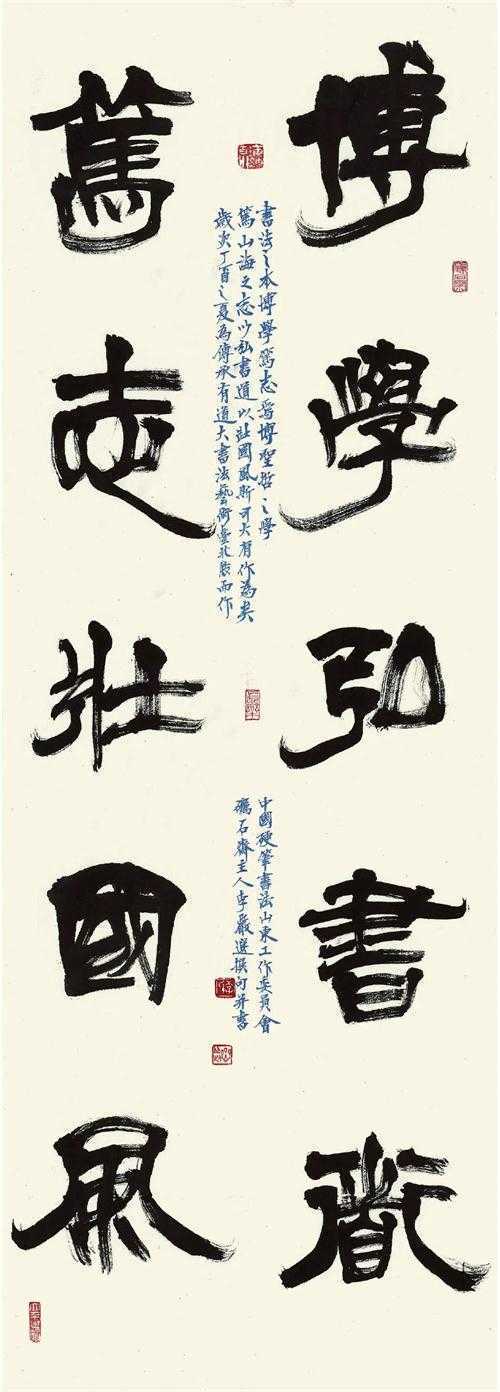 博學弘書衟
篤志壯國風
書法之本博學篤志焉博聖哲之學
篤山海之志以弘書道以壯國風斯可大有作為矣
歲次丁酉之夏為傳承有道大書法藝術臺北展而作
中國硬筆書法山東工作委員會
礪石齋主人李嚴選撰句并書